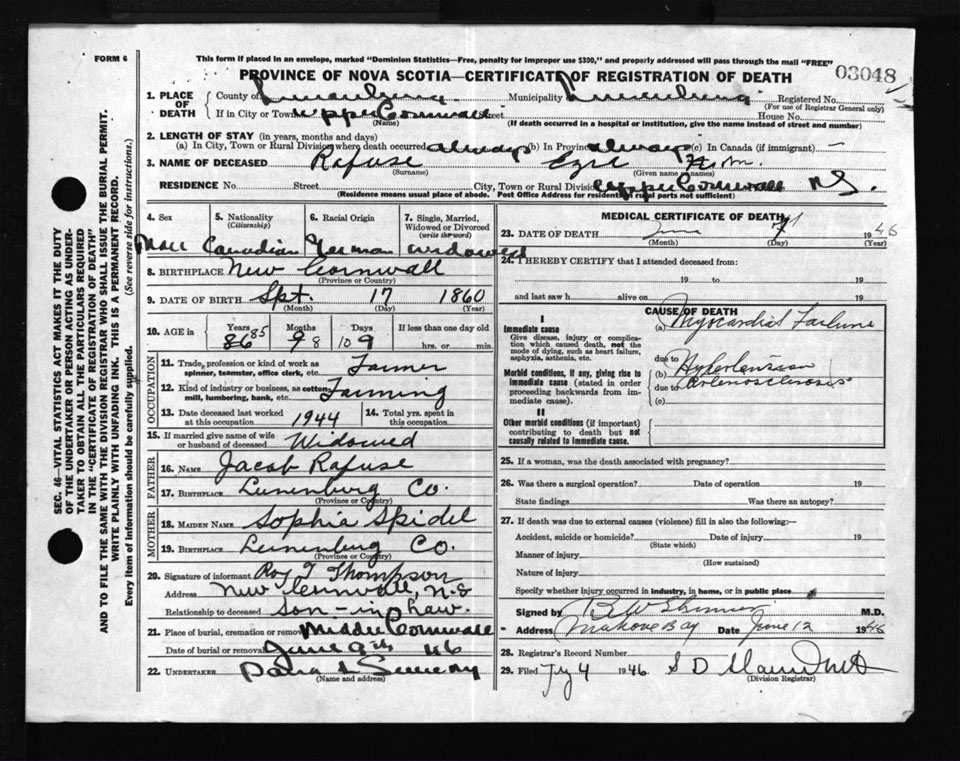 FORM 6
This form if placed in an envelope, marked "Dominion Statistics—Free, penalty for improper use $300," and properly addressed will pass through the mail "FREE"
PROVINCE OF NOVA SCOTIA—CERTIFICATE OF REGISTRATION OF DEATH
03048
1. PLACE OF DEATH
County of Lunenburg Municipality Lunenburg Registered No.
(For use of Registrar General only)
If in City or Town Upper Cornwall Street House No.
(Name) (If death occurred in a hospital or institution, give the name instead of street and number)
2. LENGTH OF STAY (in years, months and days)
(a) In City, Town or Rural Division where death occurred always (b) In Province always (c) In Canada (if immigrant) —
3. NAME OF DECEASED Rafuse Ezra
(Surname) (Given name or names)
RESIDENCE No. Street City, Town or Rural Division Upper Cornwall N.S.
(Residence means usual place of abode. Post Office Address for residents of rural parts not sufficient)
SEC. 46—VITAL STATISTICS ACT MAKES IT THE DUTY
OF THE UNDERTAKER OR PERSON ACTING AS UNDER-
TAKER TO OBTAIN ALL THE PARTICULARS REQUIRED
IN THE "CERTIFICATE OF REGISTRATION OF DEATH"
AND TO FILE THE SAME WITH THE DIVISION REGISTRAR WHO SHALL ISSUE THE BURIAL PERMIT.
WRITE PLAINLY WITH UNFADING INK. THIS IS A PERMANENT RECORD.
Every item of information should be carefully supplied. (See reverse side for instructions.)
4. Sex 5. Nationality (Citizenship) 6. Racial Origin 7. Single, Married, Widowed or Divorced (write the word)
Male Canadian German Widowed
8. BIRTHPLACE New Cornwall
(Province or Country)
9. DATE OF BIRTH Spt. 17 1860
(Month) (Day) (Year)
10. AGE in Years Months Days If less than one day old
86 85 9 8 10 9 hrs. or min.
OCCUPATION
11. Trade, profession or kind of work as spinner, teamster, office clerk, etc. Farmer
12. Kind of industry or business, as cotton mill, lumbering, bank, etc. Farming
13. Date deceased last worked at this occupation 1944 14. Total yrs. spent in this occupation
15. If married give name of wife or husband of deceased Widowed
FATHER
16. NAME Jacob Rafuse
17. BIRTHPLACE Lunenburg Co.
(Province or Country)
MOTHER
18. MAIDEN NAME Sophia Spidel
19. BIRTHPLACE Lunenburg Co.
(Province or Country)
20. Signature of informant Roy T Thompson
Address New Cornwall, N.S
Relationship to deceased Son-in Law.
21. Place of burial, cremation or removal Middle Cornwall
Date of burial or removal June 9th 46
22. UNDERTAKER
(Name and address)
MEDICAL CERTIFICATE OF DEATH
23. DATE OF DEATH June 7 1946
(Month) (Day) (Year)
24. I HEREBY CERTIFY that I attended deceased from:
19 to 19
and last saw h alive on 19
CAUSE OF DEATH
I
Immediate cause
Give disease, injury or complication which caused death, not the mode of dying, such as heart failure, asphyxia, asthenia, etc.
(a) Myocardial Failure
due to
Morbid conditions, if any, giving rise to immediate cause (stated in order proceeding backwards from immediate cause).
(b) Hypertension
due to Arteriosclerosis
(c)
II
Other morbid conditions (if important) contributing to death but not causally related to immediate cause.
25. If a woman, was the death associated with pregnancy?
26. Was there a surgical operation? Date of operation 19
State findings Was there an autopsy?
27. If death was due to external causes (violence) fill in also the following:—
Accident, suicide or homicide? Date of injury 19
(State which)
Manner of injury
(How sustained)
Nature of injury
Specify whether injury occurred in industry, in home, or in public place
Signed by M.D.
Address Mahone Bay Date June 12 1946
28. Registrar's Record Number
29. Filed Jy 4 1946
(Division Registrar)